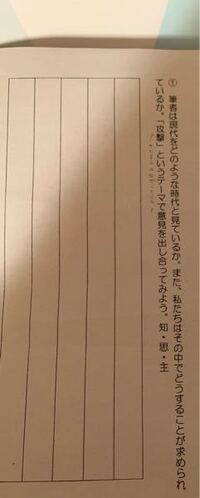 ① 筆者は現代をどのような時代と見ているか。また、私たちはその中でどうすることが求められ
ているか。「攻撃」というテーマで意見を出し合ってみよう。知・思・主